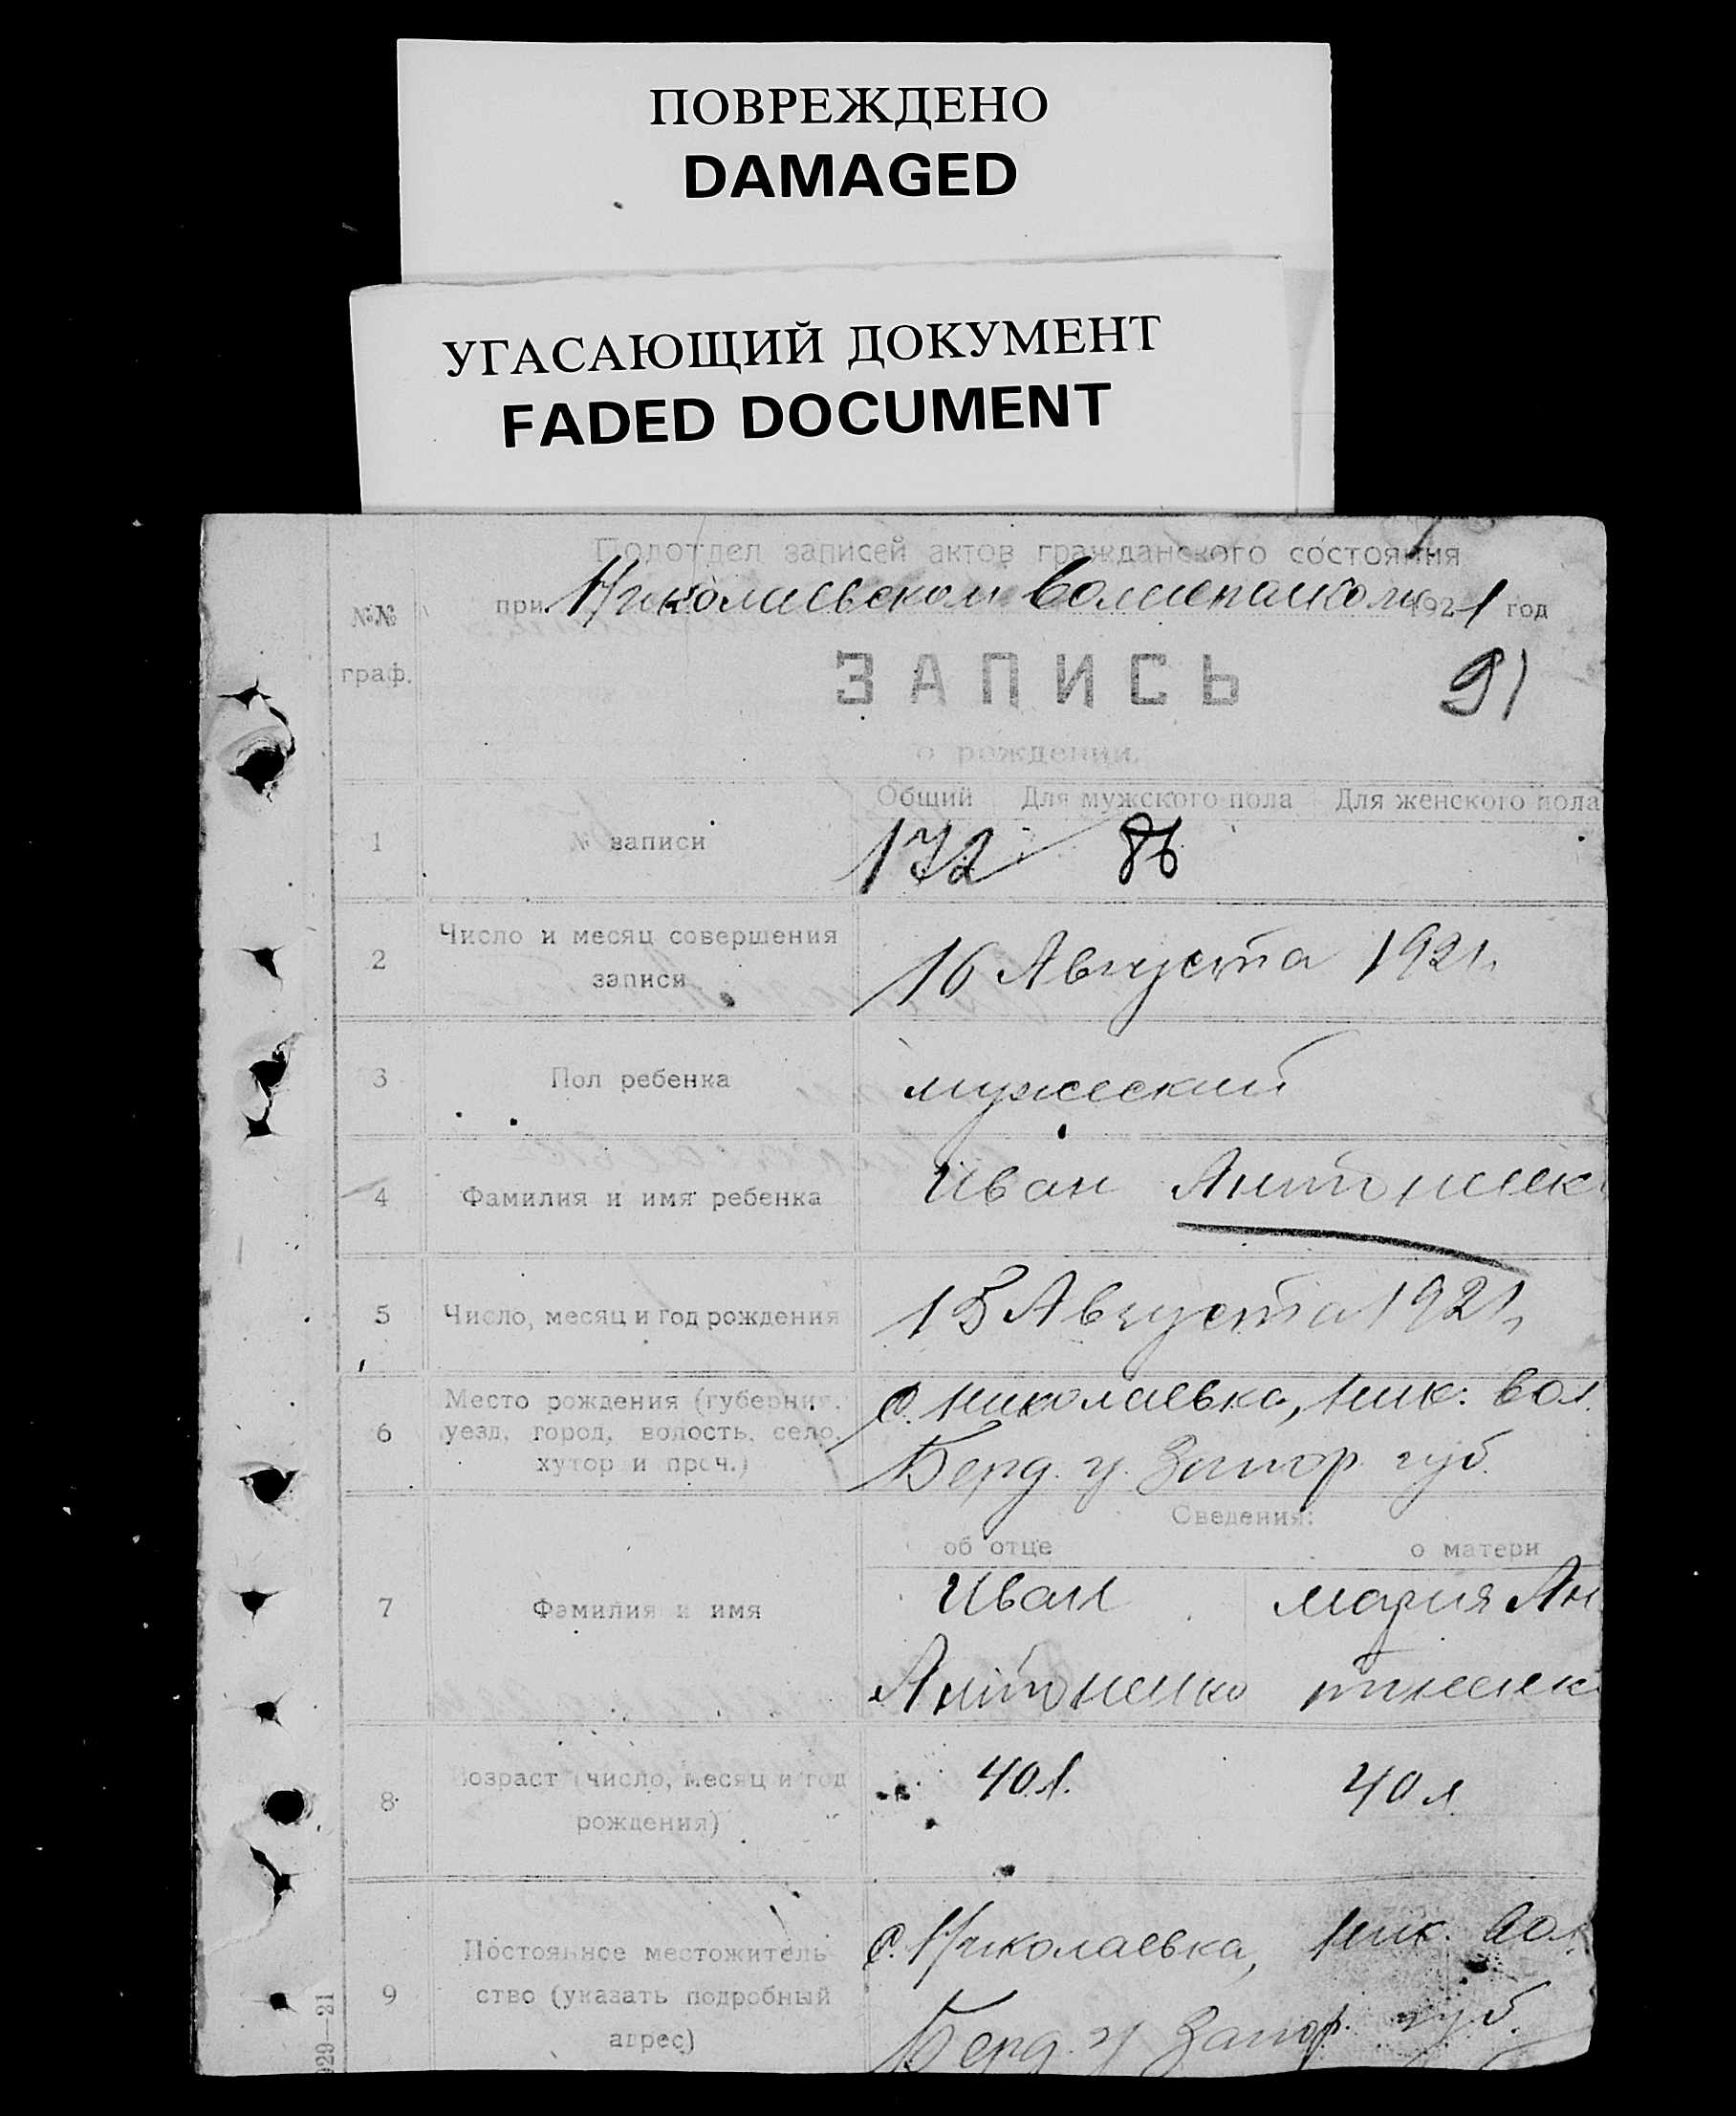 ПОВРЕЖДЕНО
DAMAGED
УГАСАЮЩИЙ ДОКУМЕНТ
FADED DOCUMENT
Подотдел записей актов гражданского состояния
№№ граф.
при Николаевском 1921 год
ЗАПИСЬ
91
о рождении.
Общий Для мужского пола Для женского пола
1 № записи 172 86
2 Число и месяц совершения
записи 16 Августа 1921 г.
3 Пол ребенка мужеский
4 Фамилия и имя ребенка Иван Антоненк
5 Число, месяц и год рождения 15 Августа 1921 г.
Место рождения (губерния, с. Николаевка, Ник. вол.
6 уезд, город, волость, село,
хутор и проч.) Берд. у. Запор. губ.
Сведения:
об отце о матери
7 Фамилия и имя Иван Мария Ан
Антоненко тоненк
8 Возраст (число, месяц и год 40 л. 40 л.
рождения)
с. Николаевка, Ник. вол.
Постоянное местожитель-
9 ство (указать подробный
адрес) Берд. у Запор. губ.
929—21